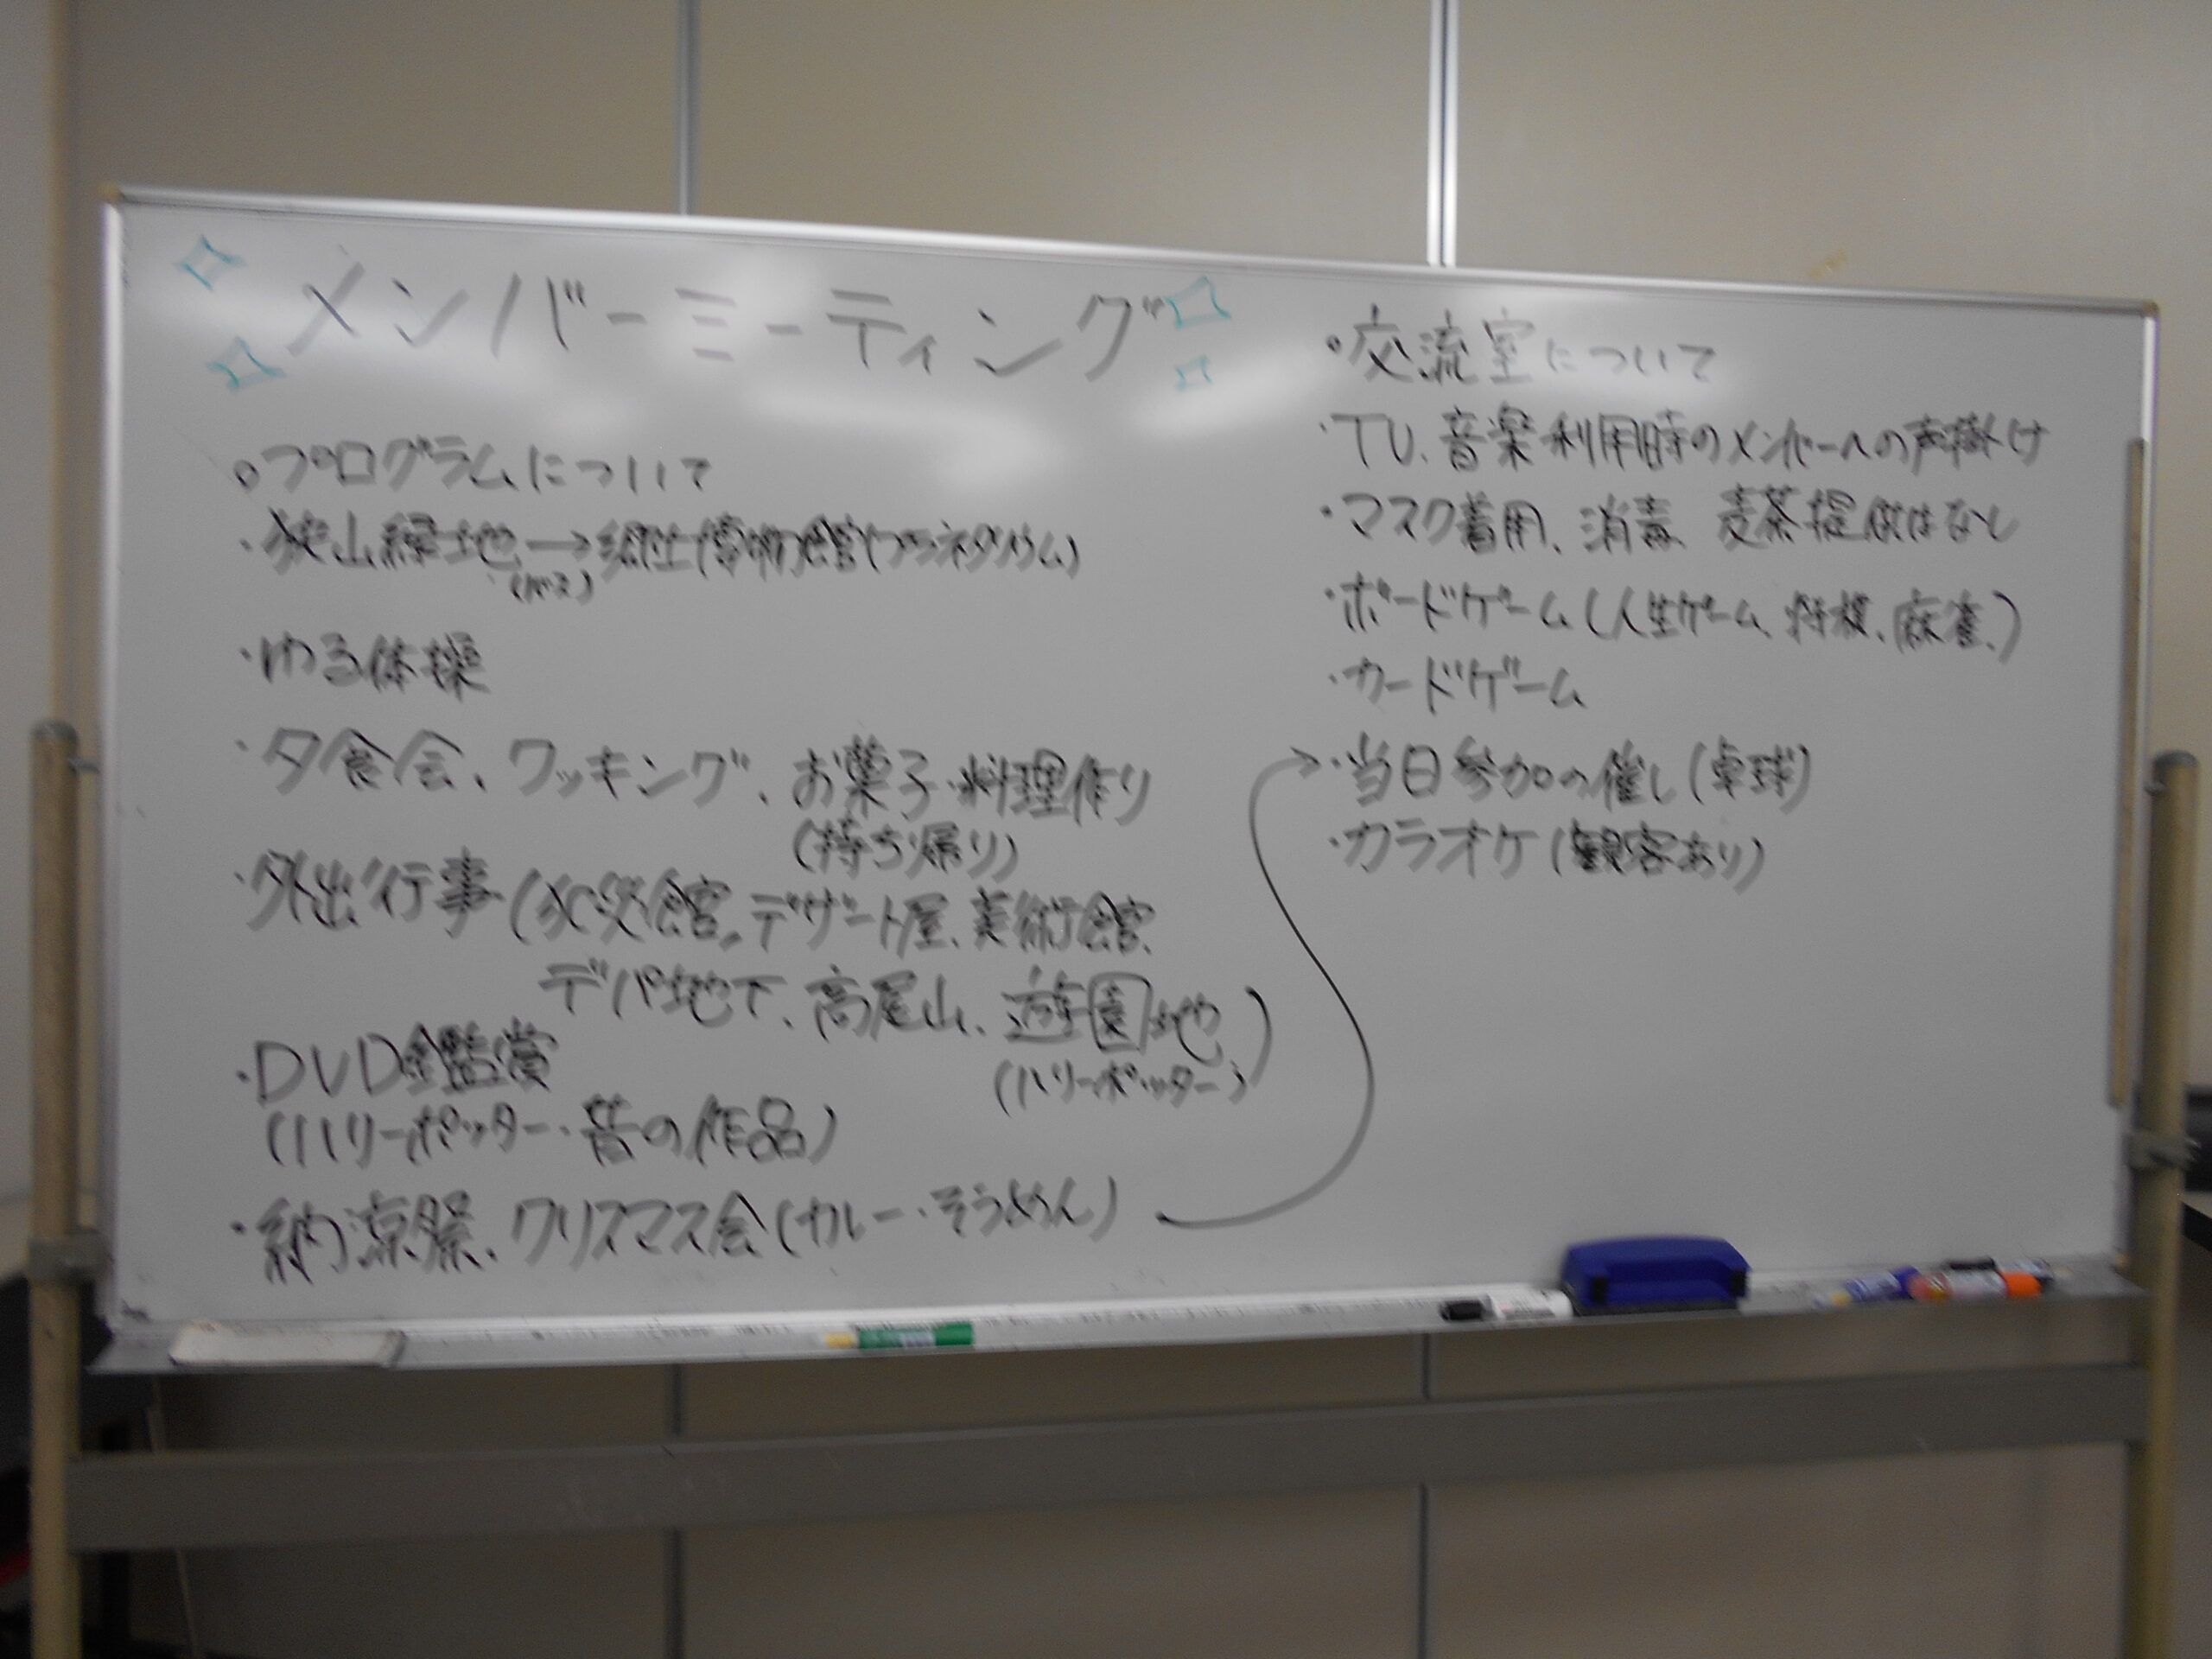 メンバーミーティング
○プログラムについて
・狭山緑地→郷土博物館(プラネタリウム)
(バス)
・ゆる体操
・夕食会、クッキング、お菓子・料理作り
(持ち帰り)
・外出行事(火災館、デザート屋、美術館、
デパ地下、高尾山、遊園地)
(ハリーポッター)
・DVD鑑賞
(ハリーポッター・昔の作品)
・納涼祭、クリスマス会(カレー・そうめん)
○交流室について
・TV、音楽利用時のメンバーへの声掛け
・マスク着用、消毒 麦茶提供はなし
・ボードゲーム(人生ゲーム、将棋、麻雀、)
・カードゲーム
・当日参加の催し(卓球)
・カラオケ(観客あり)